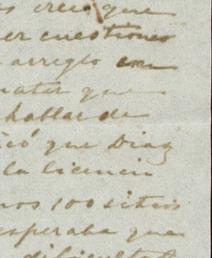 creo que
er cuestiones
arreglo con
que
hallar de
có que Diaz
la licencia
nos 100 sitios
esperaba que
dificultad